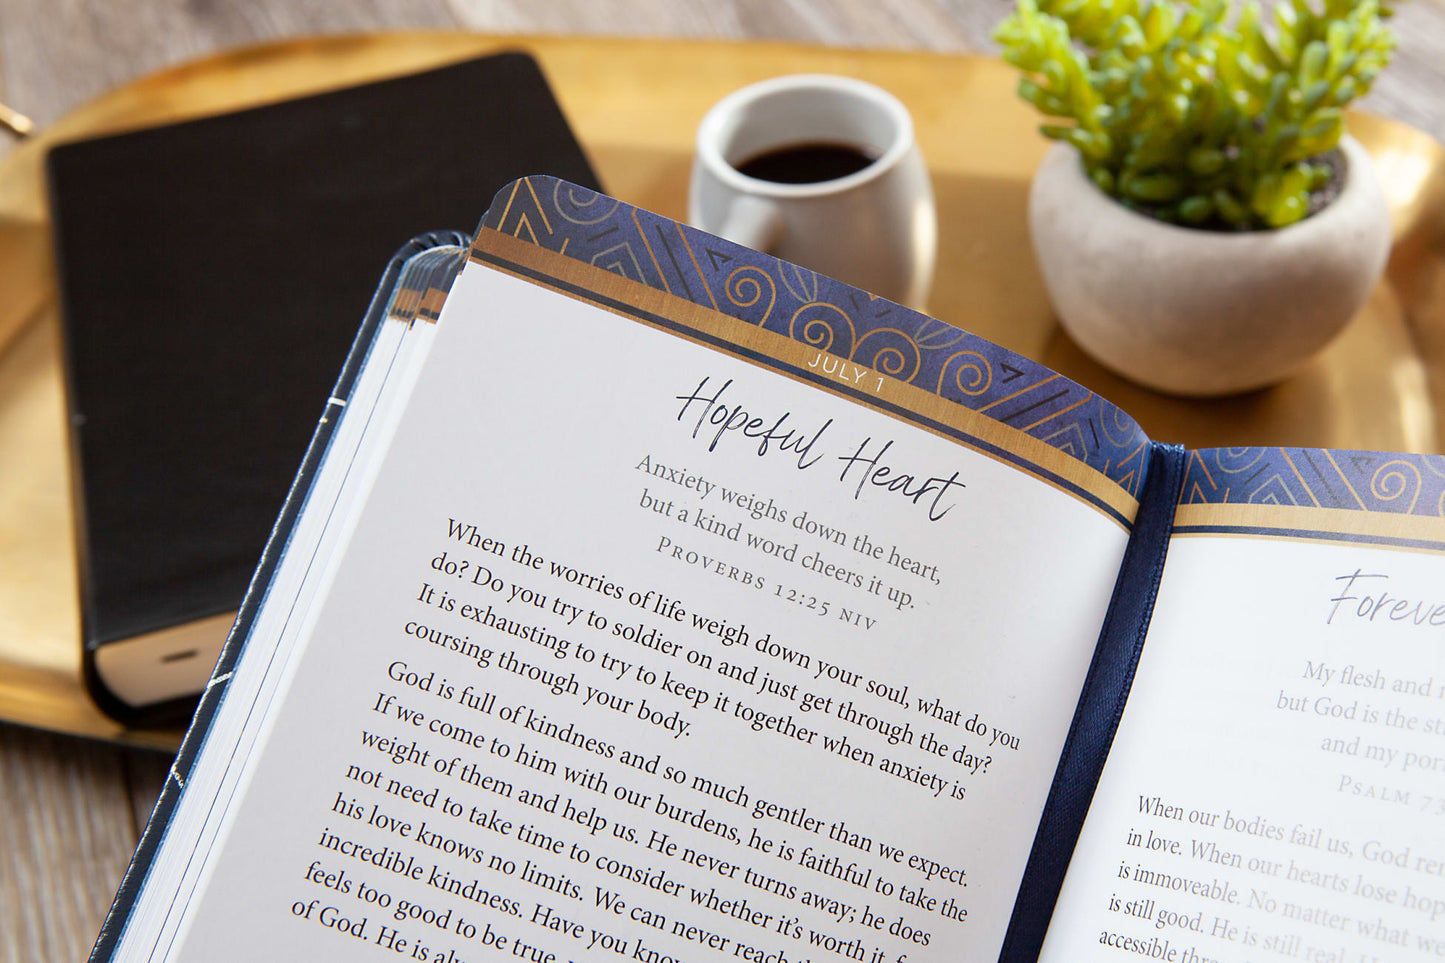 JULY 1
Hopeful Heart
Anxiety weighs down the heart,
but a kind word cheers it up.
PROVERBS 12:25 NIV
When the worries of life weigh down your soul, what do you
do? Do you try to soldier on and just get through the day?
It is exhausting to try to keep it together when anxiety is
coursing through your body.
God is full of kindness and so much gentler than we expect.
If we come to him with our burdens, he is faithful to take the
weight of them and help us. He never turns away; he does
not need to take time to consider whether it's worth it, f
his love knows no limits. We can never reach
incredible kindness. Have you know
feels too good to be true.
of God. He is alw
Foreve
My flesh and
but God is the st
and my por
PSALM 73
When our bodies fail us, God re
in love. When our hearts lose hop
is immoveable. No matter what we
is still good. He is still real. H
accessible thro